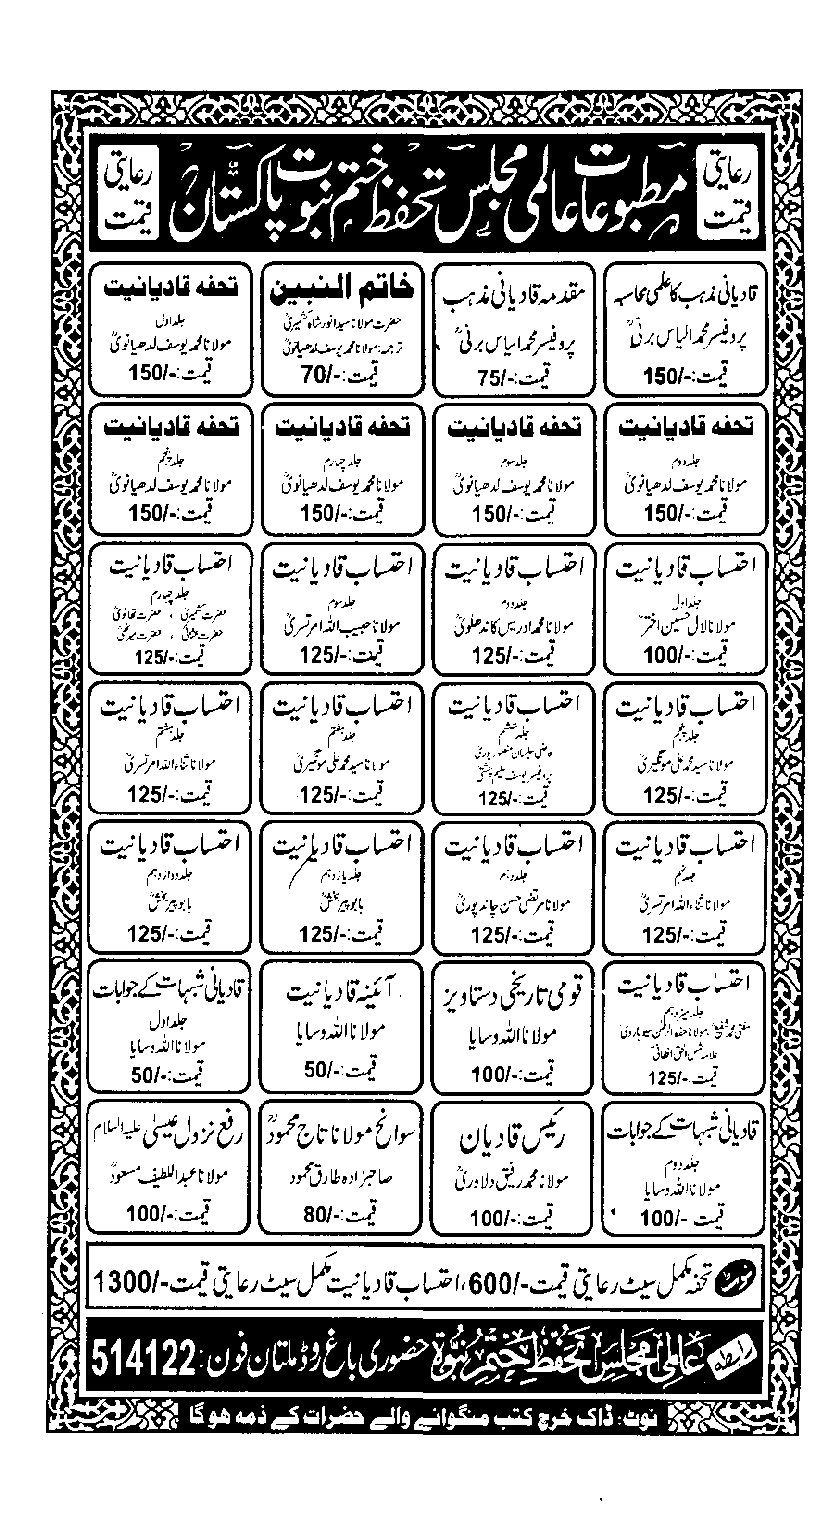 رعایتی قیمت
مطبوعات عالمی مجلس تحفظ ختم نبوت پاکستان
رعایتی قیمت
قادیانی مذہب کا علمی محاسبہ
پروفیسر محمد الیاس برنیؒ
قیمت:-/150
مقدمہ قادیانی مذہب
پروفیسر محمد الیاس برنیؒ
قیمت:-/75
خاتم النبیین
حضرت مولانا سید انور شاہ کشمیریؒ
ترجمہ: مولانا محمد یوسف لدھیانویؒ
قیمت:-/70
تحفہ قادیانیت
جلد اول
مولانا محمد یوسف لدھیانویؒ
قیمت:-/150
تحفہ قادیانیت
جلد دوم
مولانا محمد یوسف لدھیانویؒ
قیمت:-/150
تحفہ قادیانیت
جلد سوم
مولانا محمد یوسف لدھیانویؒ
قیمت:-/150
تحفہ قادیانیت
جلد چہارم
مولانا محمد یوسف لدھیانویؒ
قیمت:-/150
تحفہ قادیانیت
جلد پنجم
مولانا محمد یوسف لدھیانویؒ
قیمت:-/150
احتساب قادیانیت
جلد اول
مولانا لال حسین اخترؒ
قیمت:-/100
احتساب قادیانیت
جلد دوم
مولانا محمد ادریس کاندھلویؒ
قیمت:-/125
احتساب قادیانیت
جلد سوم
مولانا حبیب اللہ امرتسریؒ
قیمت:-/125
احتساب قادیانیت
جلد چہارم
حضرت کشمیریؒ ، حضرت تھانویؒ
حضرت عثمانیؒ ، حضرت میرٹھیؒ
قیمت:-/125
احتساب قادیانیت
جلد پنجم
مولانا سید محمد علی مونگیریؒ
قیمت:-/125
احتساب قادیانیت
جلد ششم
قاضی سلمان منصور پوریؒ
پروفیسر یوسف سلیم چشتیؒ
قیمت:-/125
احتساب قادیانیت
جلد ہفتم
مولانا سید محمد علی مونگیریؒ
قیمت:-/125
احتساب قادیانیت
جلد ہشتم
مولانا ثناء اللہ امرتسریؒ
قیمت:-/125
احتساب قادیانیت
جلد نہم
مولانا ثناء اللہ امرتسریؒ
قیمت:-/125
احتساب قادیانیت
جلد دہم
مولانا مرتضیٰ حسن چاندپوریؒ
قیمت:-/125
احتساب قادیانیت
جلد یازدہم
بابو پیر بخشؒ
قیمت:-/125
احتساب قادیانیت
جلد دوازدہم
بابو پیر بخشؒ
قیمت:-/125
احتساب قادیانیت
جلد سیزدہم
مفتی محمد شفیعؒ، مولانا حفظ الرحمن سیوہارویؒ
علامہ شمس الحق افغانیؒ
قیمت -/125
قومی تاریخی دستاویز
مولانا اللہ وسایا
قیمت:-/100
آئینہ قادیانیت
مولانا اللہ وسایا
قیمت:-/50
قادیانی شبہات کے جوابات
جلد اول
مولانا اللہ وسایا
قیمت:-/50
قادیانی شبہات کے جوابات
جلد دوم
مولانا اللہ وسایا
قیمت -/100
رئیس قادیان
مولانا محمد رفیق دلاوریؒ
قیمت:-/100
سوانح مولانا تاج محمودؒ
صاحبزادہ طارق محمود
قیمت:-/80
رفع نزول عیسیٰ علیہ السلام
مولانا عبداللطیف مسعودؒ
قیمت:-/100
نوٹ تحفہ مکمل سیٹ رعایتی قیمت-/600، احتساب قادیانیت مکمل سیٹ رعایتی قیمت-/1300
رابطہ عالمی مجلس تحفظ ختم نبوۃ حضوری باغ روڈ ملتان فون: 514122
نوٹ: ڈاک خرچ کتب منگوانے والے حضرات کے ذمہ ہوگا